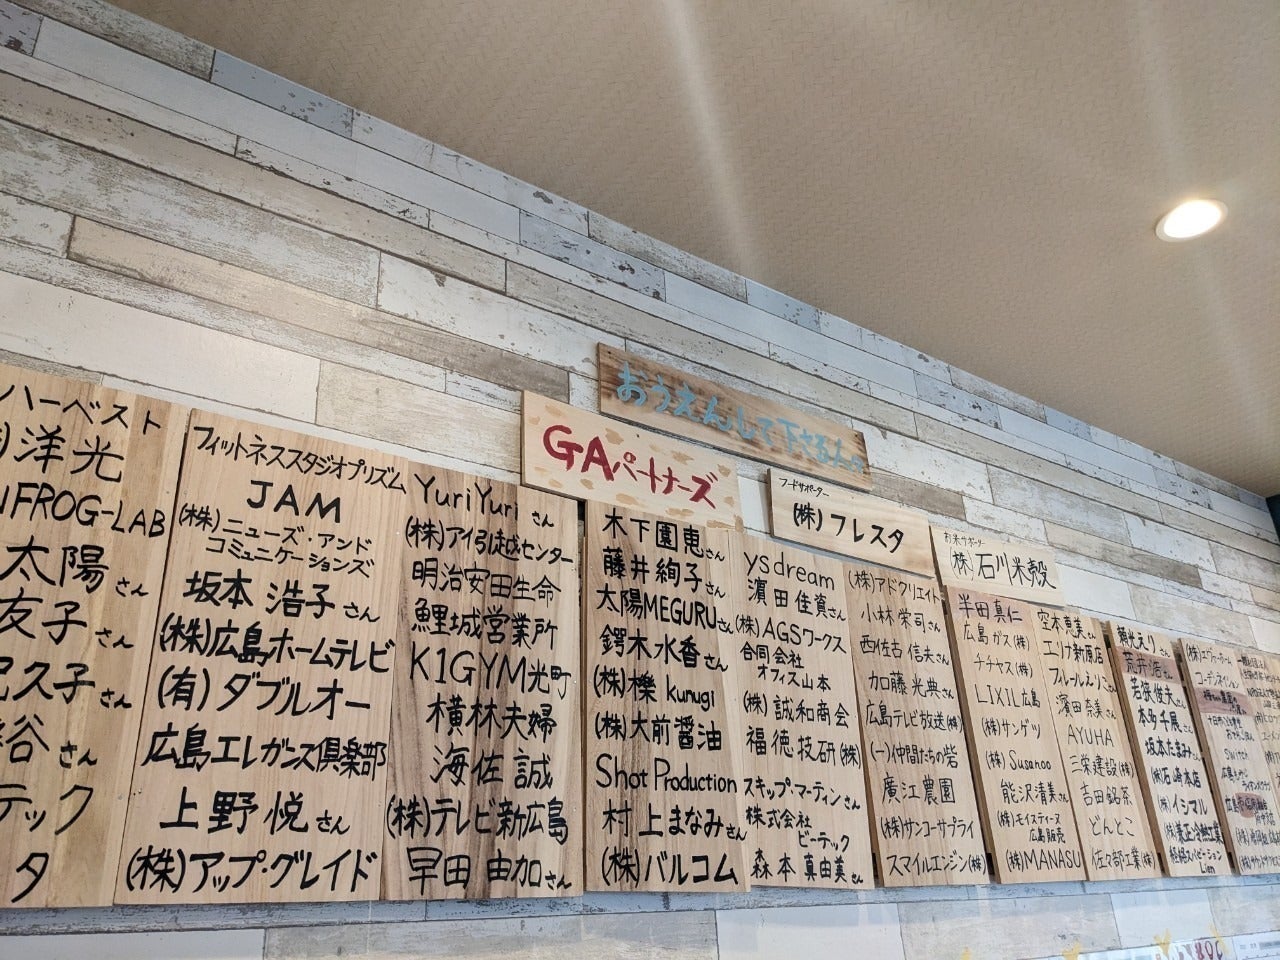 おうえんして下さる人
GAパートナーズ
フードサポーター
(株)フレスタ
お米サポーター
(株)石川米穀
ハーベスト
洋光
FROG-LAB
太陽さん
友子さん
久子さん
谷さん
テック
タ
フィットネススタジオプリズム
JAM
(株)ニューズ・アンド
コミュニケーションズ
坂本 浩子さん
(株)広島ホームテレビ
(有)ダブルオー
広島エレガンス倶楽部
上野 悦さん
(株)アップ・グレイド
YuriYuriさん
(株)アイ引越センター
明治安田生命
鯉城営業所
K1GYM光町
横林夫婦
海佐 誠
(株)テレビ新広島
早田 由加さん
木下園恵さん
藤井絢子さん
太陽MEGURUさん
鍔木水香さん
(株)櫟 kunugi
(株)大前醤油
Shot Production
村上まなみさん
(株)バルコム
ysdream
濱田佳資さん
(株)AGSワークス
合同会社
オフィス山本
(株)誠和商会
福徳技研(株)
スキップ・マーティンさん
株式会社
ビーテック
森本 真由美さん
(株)アドクリエイト
小林栄司さん
西佐古 信夫さん
加藤光典さん
広島テレビ放送(株)
(一)仲間たちの砦
廣江農園
(株)サンコーサプライ
スマイルエンジン(株)
半田真仁
広島ガス(株)
チチヤス(株)
LIXIL広島
(株)サンゲツ
(株)Susanoo
能沢清美さん
(株)モイスティーヌ
広島販売
(株)MANASU
空本恵美さん
エリア新原店
フィルールえりこさん
濱田奈美さん
AYUHA
三栄建設(株)
吉田銘茶
どんとこ
佐々部工業(株)
頼光えりさん
荒井浩さん
若狭俊夫さん
本多千展さん
坂本たまみさん
(株)石崎本店
(株)イシマル